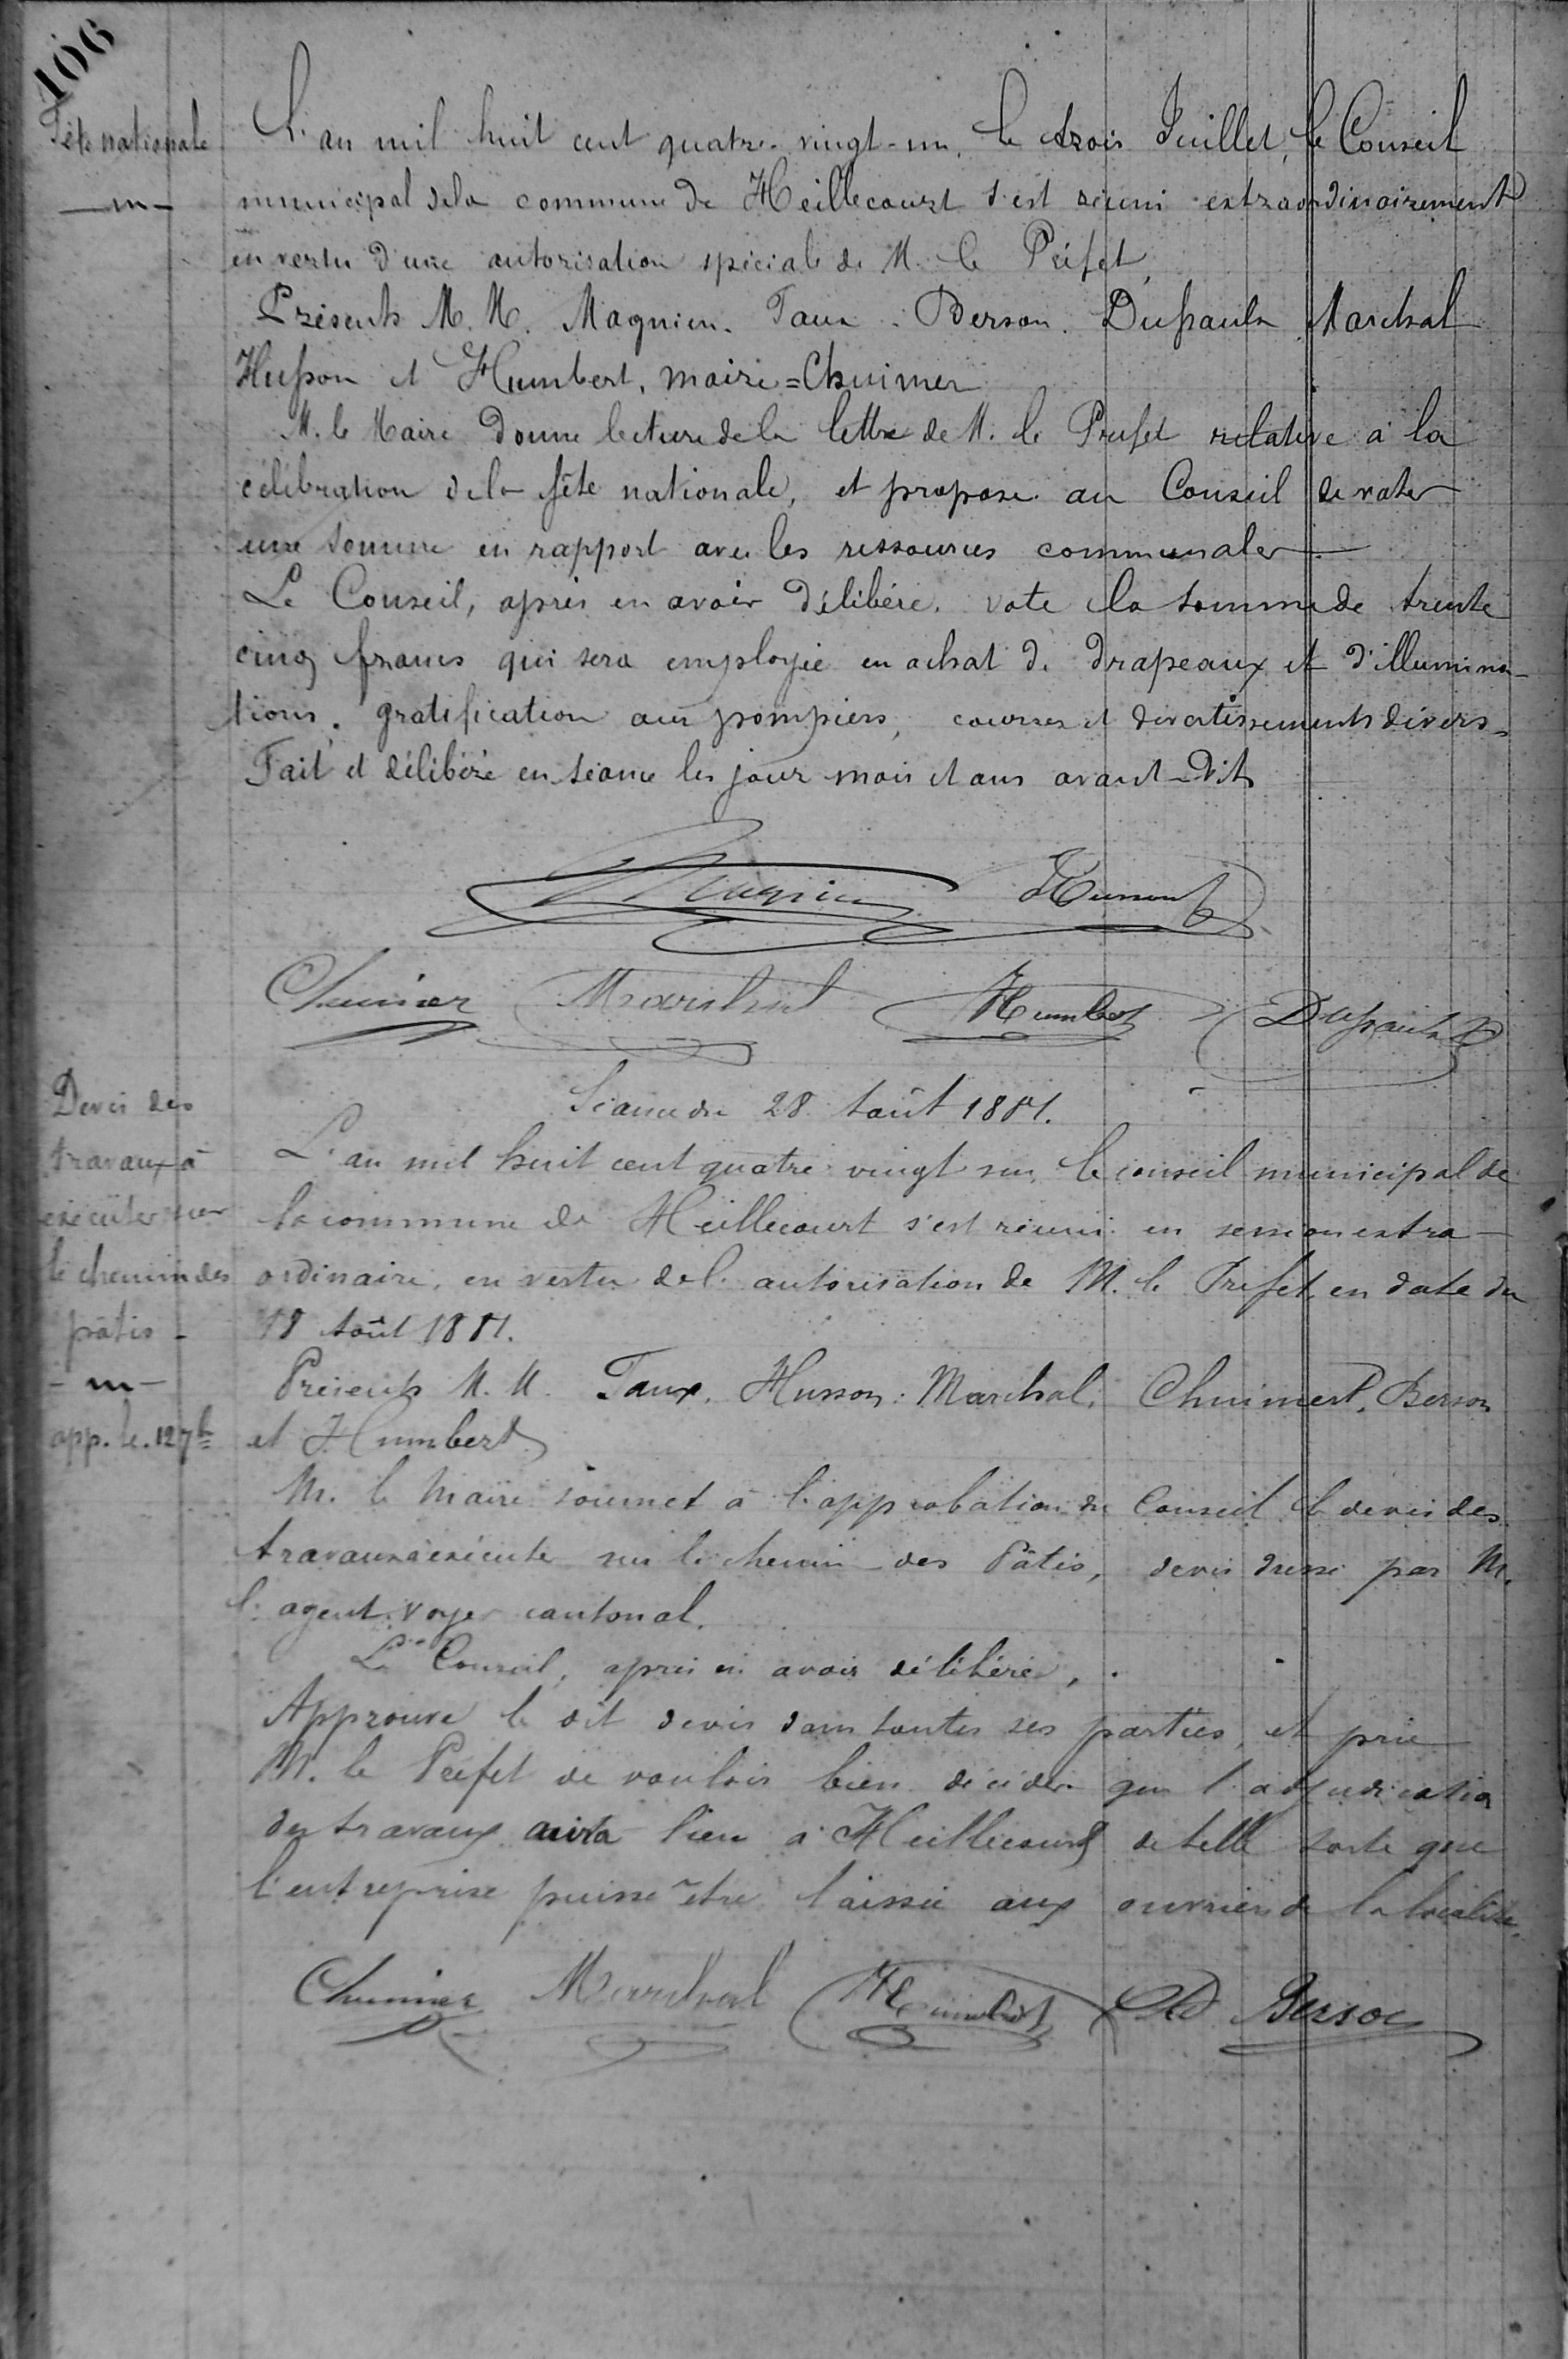 106
Fête nationale
L'an mil huit cent quatre-vingt-un, le trois Juillet, le Conseil
municipal de la commune de Heillecourt s'est réuni extraordinairement
en vertu d'une autorisation spéciale de M. le Préfet,
Présents M. M. Magnien. Taux. Berson. Dussaulx Marchal
Husson et Humbert, maire = Chuimer
M. le Maire donne lecture de la lettre de M. le Préfet relative à la
célébration de la fête nationale, et propose au Conseil de voter
une somme en rapport avec les ressources communales.
Le Conseil, après en avoir délibéré, vote la somme de trente
cinq francs qui sera employée en achat de drapeaux et d'illumina-
tions, gratification aux pompiers, courses et divertissements divers.
Fait et délibéré en séance les jour mois et an avant-dits
Magnien Husson
Chuimer Marchal Humbert Dussaulx
Devis des
travaux à
exécuter sur
le chemin des
pâtis -
app. le 12 7bre
Séance du 28 Août 1881.
L'an mil huit cent quatre vingt un, le conseil municipal de
la commune de Heillecourt s'est réuni en session extra-
ordinaire, en vertu de l'autorisation de M. le Préfet, en date du
18 Août 1881.
Présents M. M. Taux, Husson, Marchal, Chuimert, Berson
et Humbert
M. le Maire soumet à l'approbation du Conseil le devis des
travaux à exécuter sur le chemin des Pâtis, devis dressé par M.
l'agent voyer cantonal.
Le Conseil, après en avoir délibéré,
Approuve le dit devis dans toutes ses parties, et prie
M. le Préfet de vouloir bien décider que l'adjudication
des travaux aura lieu à Heillecourt de telle sorte que
l'entreprise puisse être laissée aux ouvriers de la localité.
Chuimer Marchal Humbert Berson